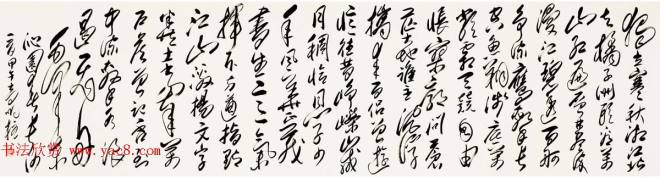 独立寒秋湘江北
去橘子洲头看万
山红遍层林尽染
漫江碧透百舸
争流鹰击长
空鱼翔浅底万
类霜天竞自由
怅寥廓问苍
茫大地谁主沉浮
携来百侣曾游
忆往昔峥嵘岁
月稠恰同学少
年风华正茂
书生意气
挥斥方遒指点
江山激扬文字
粪土当年万
户侯曾记否到
中流击水浪
遏飞舟
毛泽东词
沁园春长沙
甲午
书法欣赏
www.yac8.com